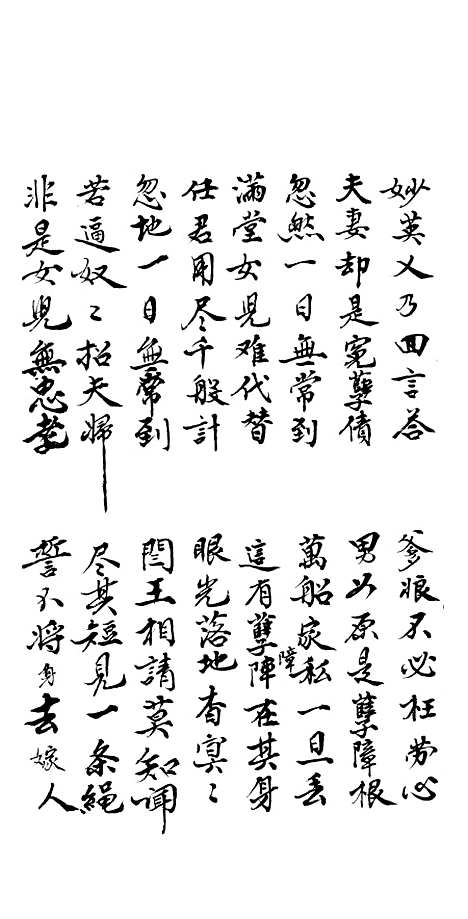 妙英又乃回言答
爹娘不必枉劳心
夫妻却是冤孽债
男女原是孽障根
忽然一日無常到
萬船家私一旦丢
满堂女児难代替
這有孽陣障在其身
任君用尽千般计
眼光落地杳冥〻
忽地一日無常到
閻王相請莫知聞
若逼奴〻招夫婦
尽其短見一条绳
非是女児無忠孝
誓不将身去嫁人